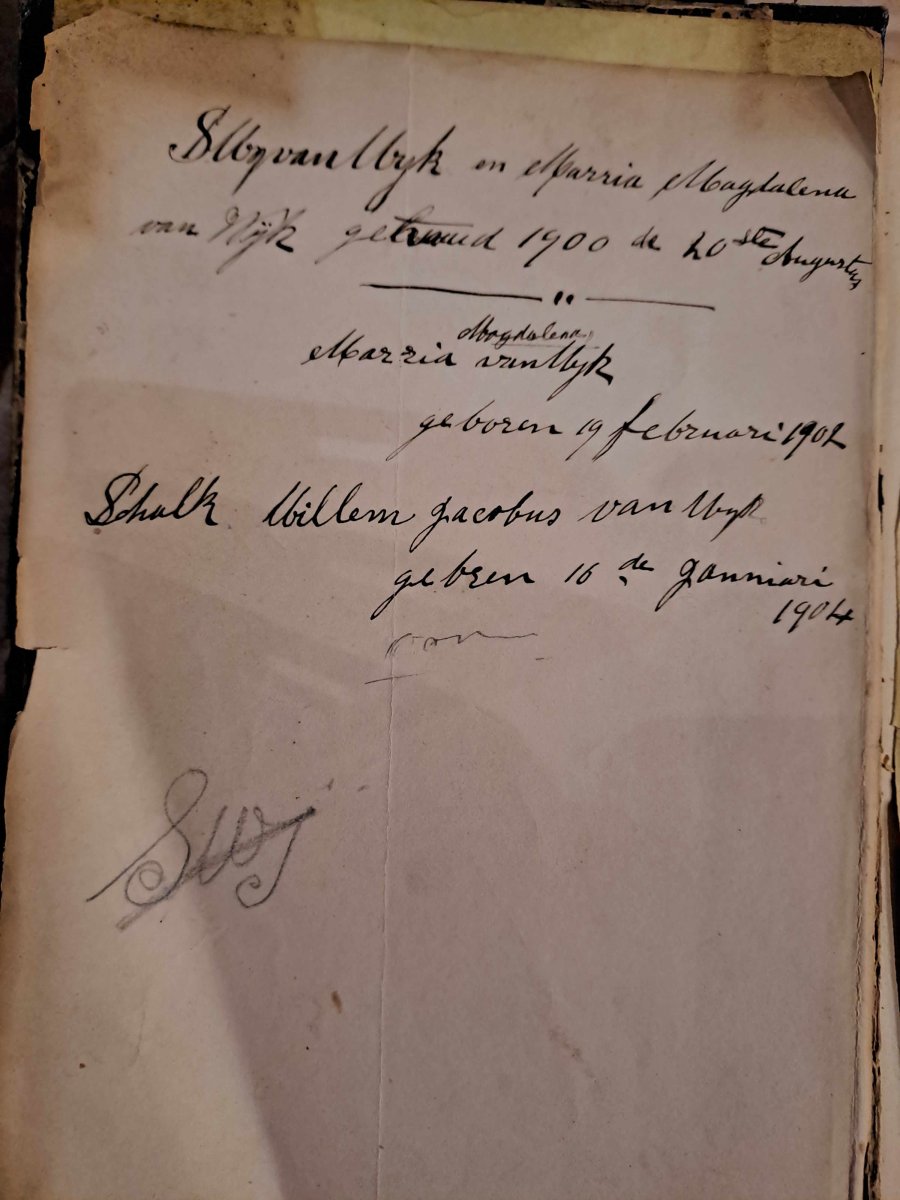 SWJ van Wyk en Marria Magdalena
van Wÿk getrouud 1900 de 20ste Augustus
Magdalena
Marria van Wyk
geboren 19 februari 1902
Schalk Willem Jacobus van Wyk
gebren 16 de Janniari
1904
SWJ